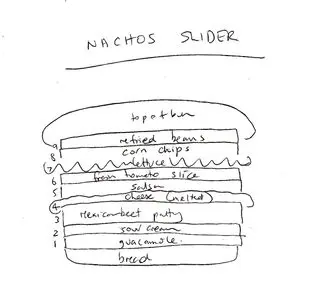 NACHOS SLIDER
top of bun
9 refried beans
8 corn chips
7 lettuce
6 fresh tomato slice
5 salsa
4 cheese (melted)
3 mexican beef patty
2 sour cream
1 guacamole
bread